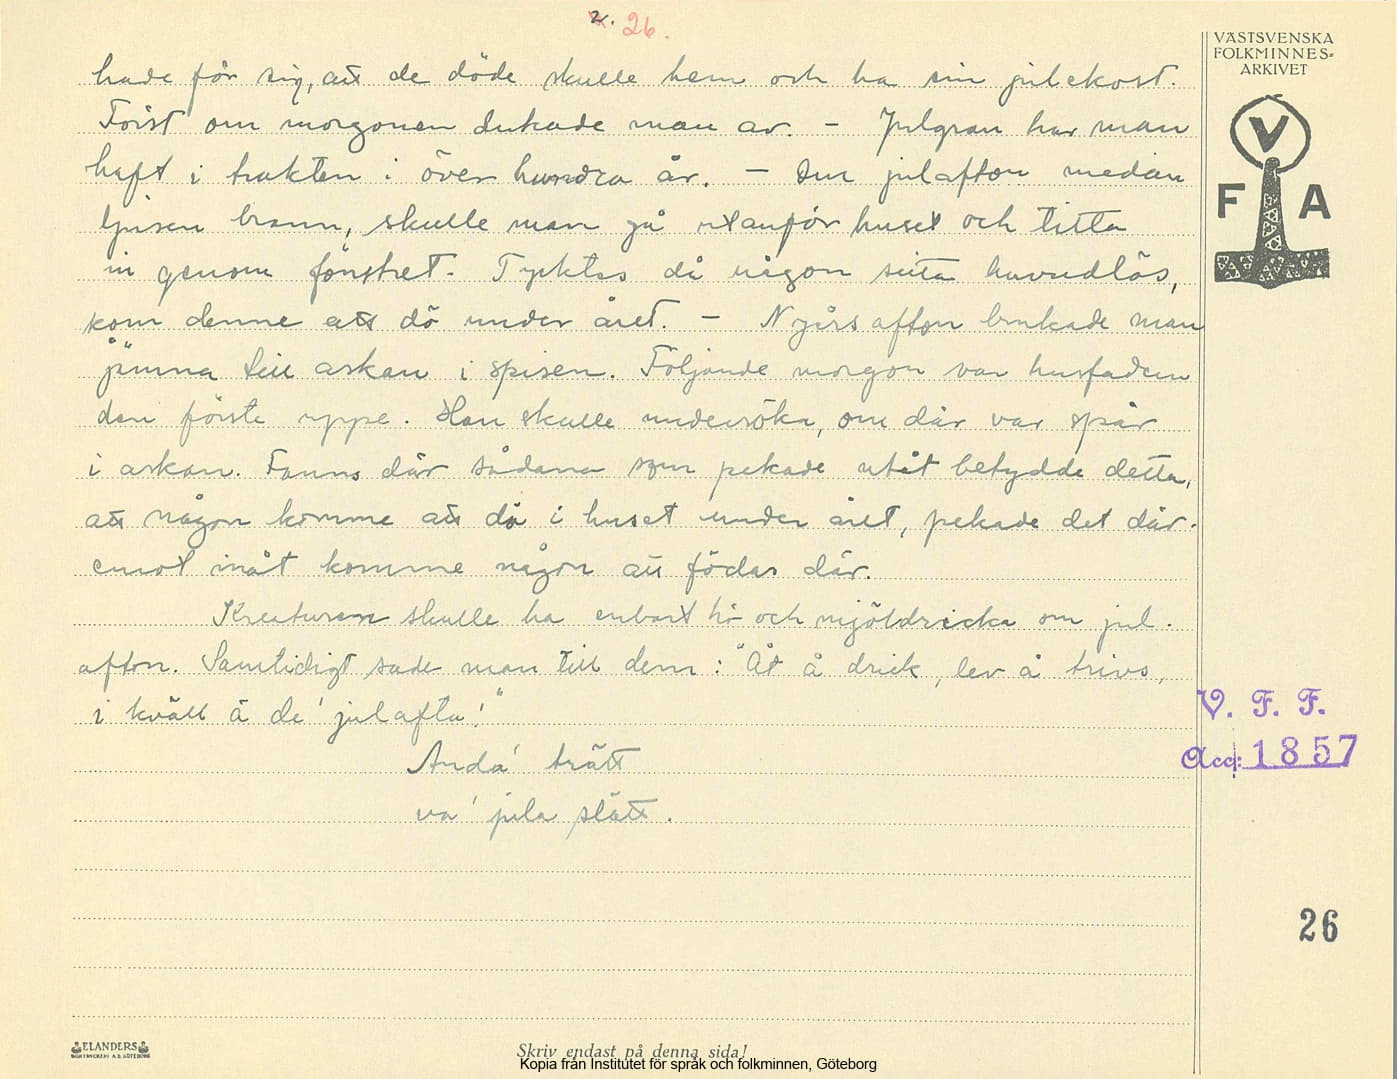 2. 26.
VÄSTSVENSKA
FOLKMINNES-
ARKIVET
V
F A
hade för sig, att de döde skulle hem och ha sin julekost.
Först om morgonen dukade man av. – Julgran har man
haft i trakten i över hundra år. – Om julafton medan
ljusen brann, skulle man gå utanför huset och titta
in genom fönstret. Tycktes då någon sitta huvudlös,
kom denne att dö under året. – Nyårsafton brukade man
jämna till askan i spisen. Följande morgon var husfadern
den förste uppe. Han skulle undersöka, om där var spår
i askan. Fanns där sådana som pekade utåt betydde detta,
att någon komme att dö i huset under året, pekade det där-
emot inåt komme någon att födas där.
Kreaturen skulle ha enbart hö och mjöldricka om jul-
afton. Samtidigt sade man till dem: "Ät å drick, lev å trivs,
i kväll ä de' julafta!"
Andá trätt
va' jula slätt.
V. F. F.
Acc: 1857
26
ELANDERS
BOKTRYCKERI A.B. GÖTEBORG
Skriv endast på denna sida!
Kopia från Institutet för språk och folkminnen, Göteborg